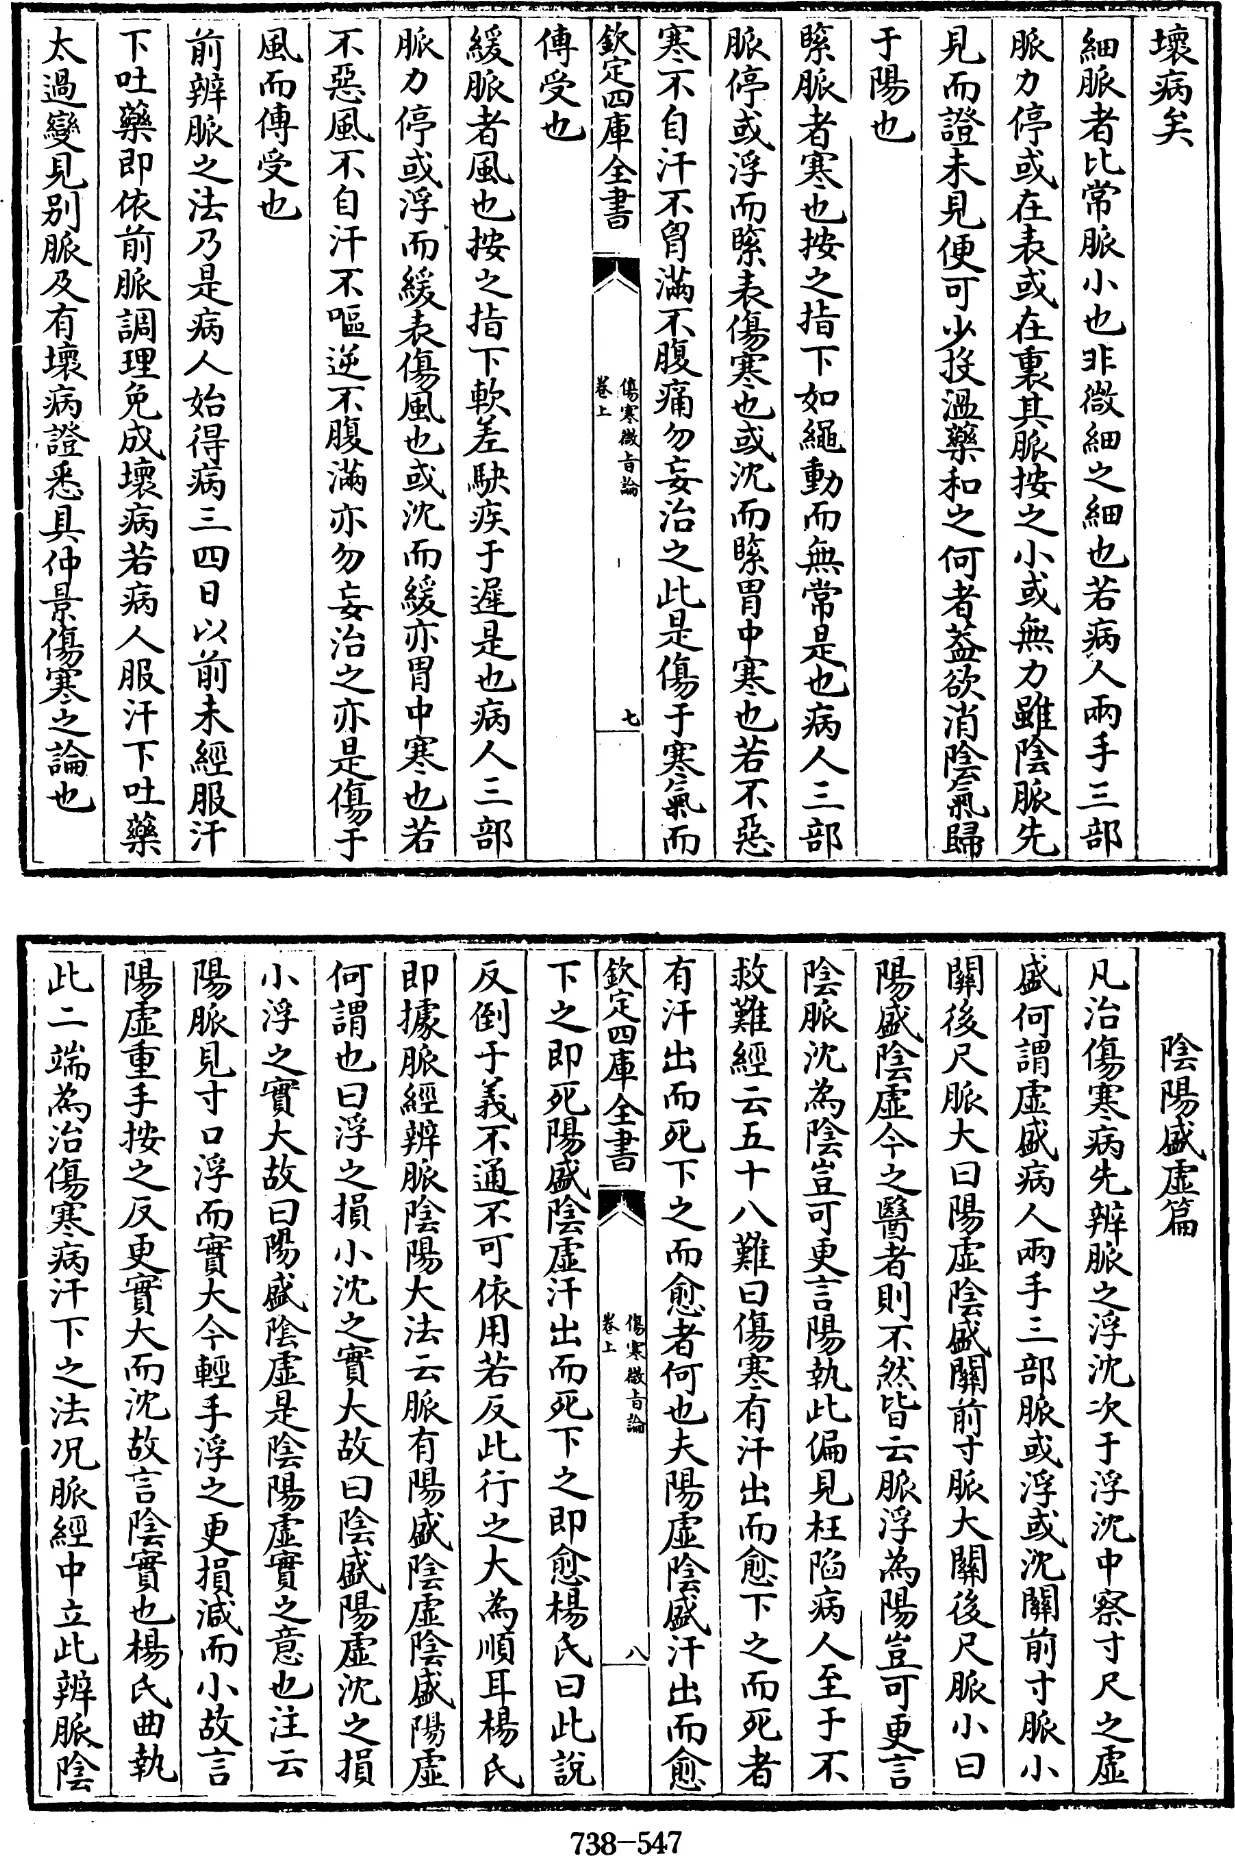 壞病矣
細脈者比常脈小也非微細之細也若病人兩手三部
脈力停或在表或在裏其脈按之小或無力雖陰脈先
見而證未見便可少投溫藥和之何者蓋欲消陰氣歸
于陽也
緊脈者寒也按之指下如繩動而無常是也病人三部
脈停或浮而緊表傷寒也或沈而緊胃中寒也若不惡
寒不自汗不胷滿不腹痛勿妄治之此是傷于寒氣而
欽定四庫全書
傷寒微旨論
卷上
七
傳受也
緩脈者風也按之指下軟差駃疾于遲是也病人三部
脈力停或浮而緩表傷風也或沈而緩亦胃中寒也若
不惡風不自汗不嘔逆不腹滿亦勿妄治之亦是傷于
風而傳受也
前辨脈之法乃是病人始得病三四日以前未經服汗
下吐藥即依前脈調理免成壞病若病人服汗下吐藥
太過變見別脈及有壞病證悉具仲景傷寒之論也
陰陽盛虛篇
凡治傷寒病先辨脈之浮沈次于浮沈中察寸尺之虛
盛何謂虛盛病人兩手三部脈或浮或沈關前寸脈小
關後尺脈大曰陽虛陰盛關前寸脈大關後尺脈小曰
陽盛陰虛今之醫者則不然皆云脈浮為陽豈可更言
陰脈沈為陰豈可更言陽執此偏見枉陷病人至于不
救難經云五十八難曰傷寒有汗出而愈下之而死者
有汗出而死下之而愈者何也夫陽虛陰盛汗出而愈
欽定四庫全書
傷寒微旨論
卷上
八
下之即死陽盛陰虛汗出而死下之即愈楊氏曰此說
反倒于義不通不可依用若反此行之大為順耳楊氏
即據脈經辨脈陰陽大法云脈有陽盛陰虛陰盛陽虛
何謂也曰浮之損小沈之實大故曰陰盛陽虛沈之損
小浮之實大故曰陽盛陰虛是陰陽虛實之意也注云
陽脈見寸口浮而實大今輕手浮之更損減而小故言
陽虛重手按之反更實大而沈故言陰實也楊氏曲執
此二端為治傷寒病汗下之法况脈經中立此辨脈陰
738-547